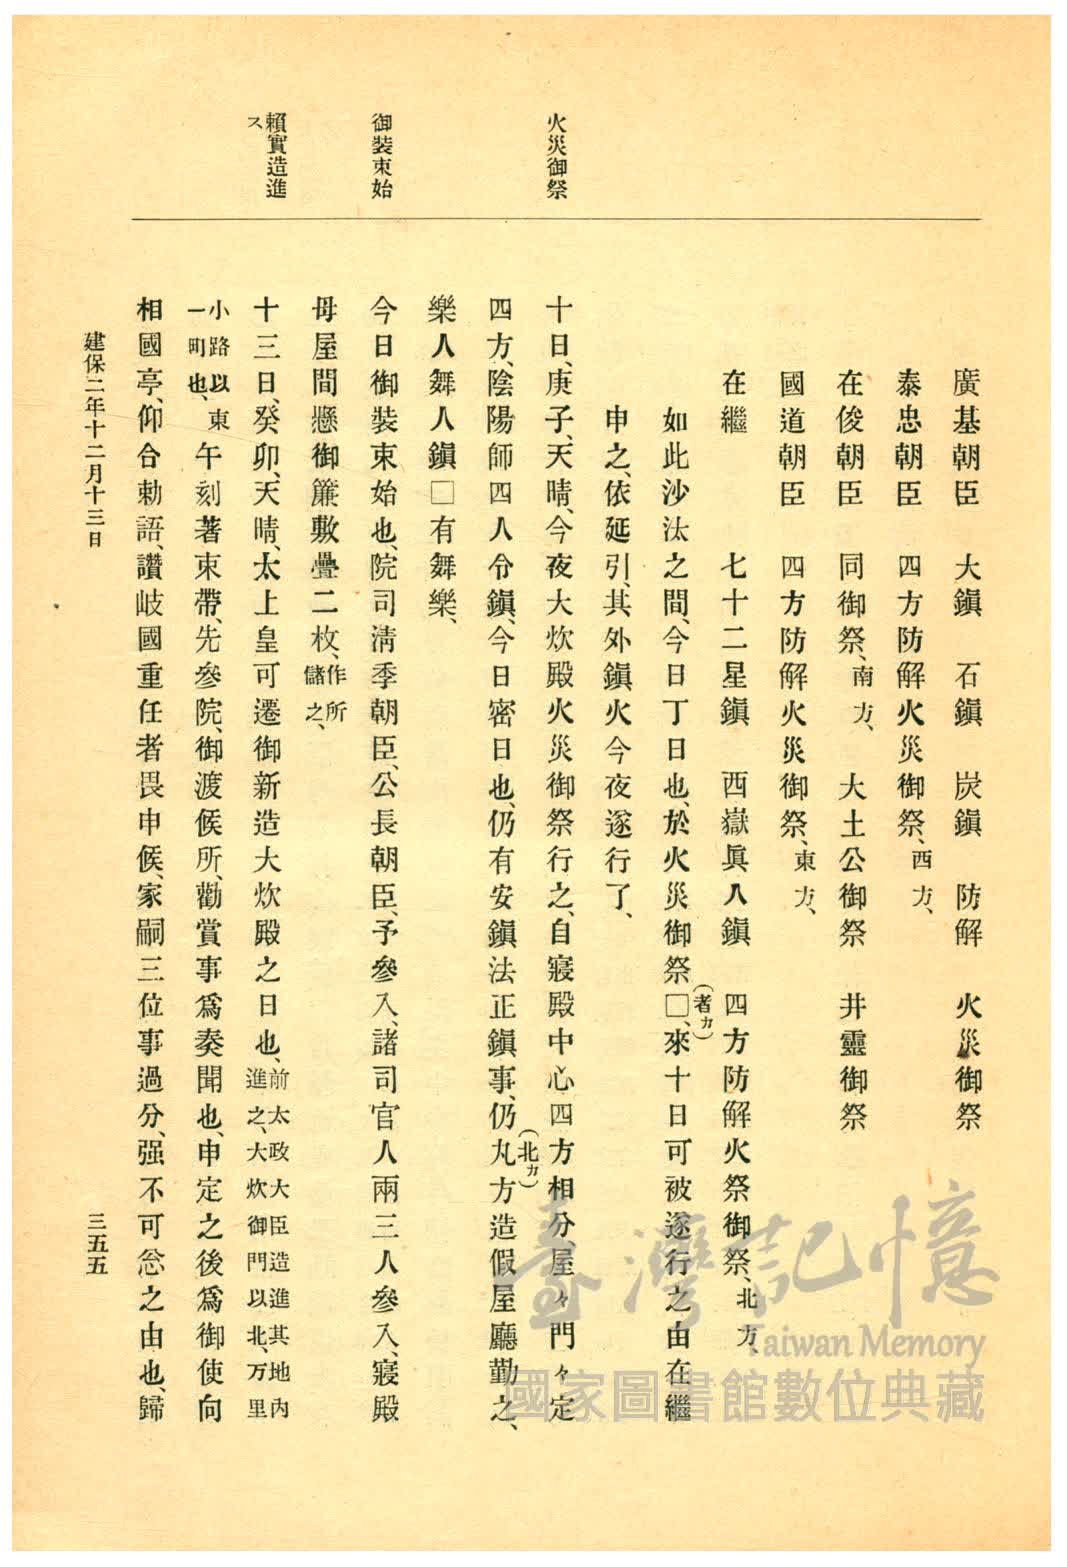 火災御祭
御裝束始
賴實造進
ス
廣基朝臣　大鎭　石鎭　炭鎭　防解　火災御祭
泰忠朝臣　四方防解火災御祭、西方、
在俊朝臣　同御祭、南方、　大土公御祭　井靈御祭
國道朝臣　四方防解火災御祭、東方、
在繼　七十二星鎭　西嶽眞人鎭　四方防解火祭御祭、北方、
如此沙汰之間、今日丁日也、於火災御祭□(者カ)、來十日可被遂行之由在繼
申之、依延引、其外鎭火今夜遂行了、
十日、庚子、天晴、今夜大炊殿火災御祭行之、自寢殿中心四方相分、屋々門々定
四方、陰陽師四人令鎭、今日密日也、仍有安鎭法正鎭事、仍丸(北カ)方造假屋廳勤之、
樂人舞人鎭□有舞樂、
今日御裝束始也、院司淸季朝臣、公長朝臣、予參入、諸司官人兩三人參入、寢殿
母屋間懸御簾敷疊二枚、作所儲之、
十三日、癸卯、天晴、太上皇可遷御新造大炊殿之日也、前太政大臣造進其地內進之、大炊御門以北、万里
小路以東一町也、午刻著束帶、先參院、御渡候所、勸賞事爲奏聞也、申定之後爲御使向
相國亭、仰合勅語、讚岐國重任者畏申候、家嗣三位事過分、强不可忩之由也、歸
建保二年十二月十三日
三五五
臺灣記憶
Taiwan Memory
國家圖書館數位典藏